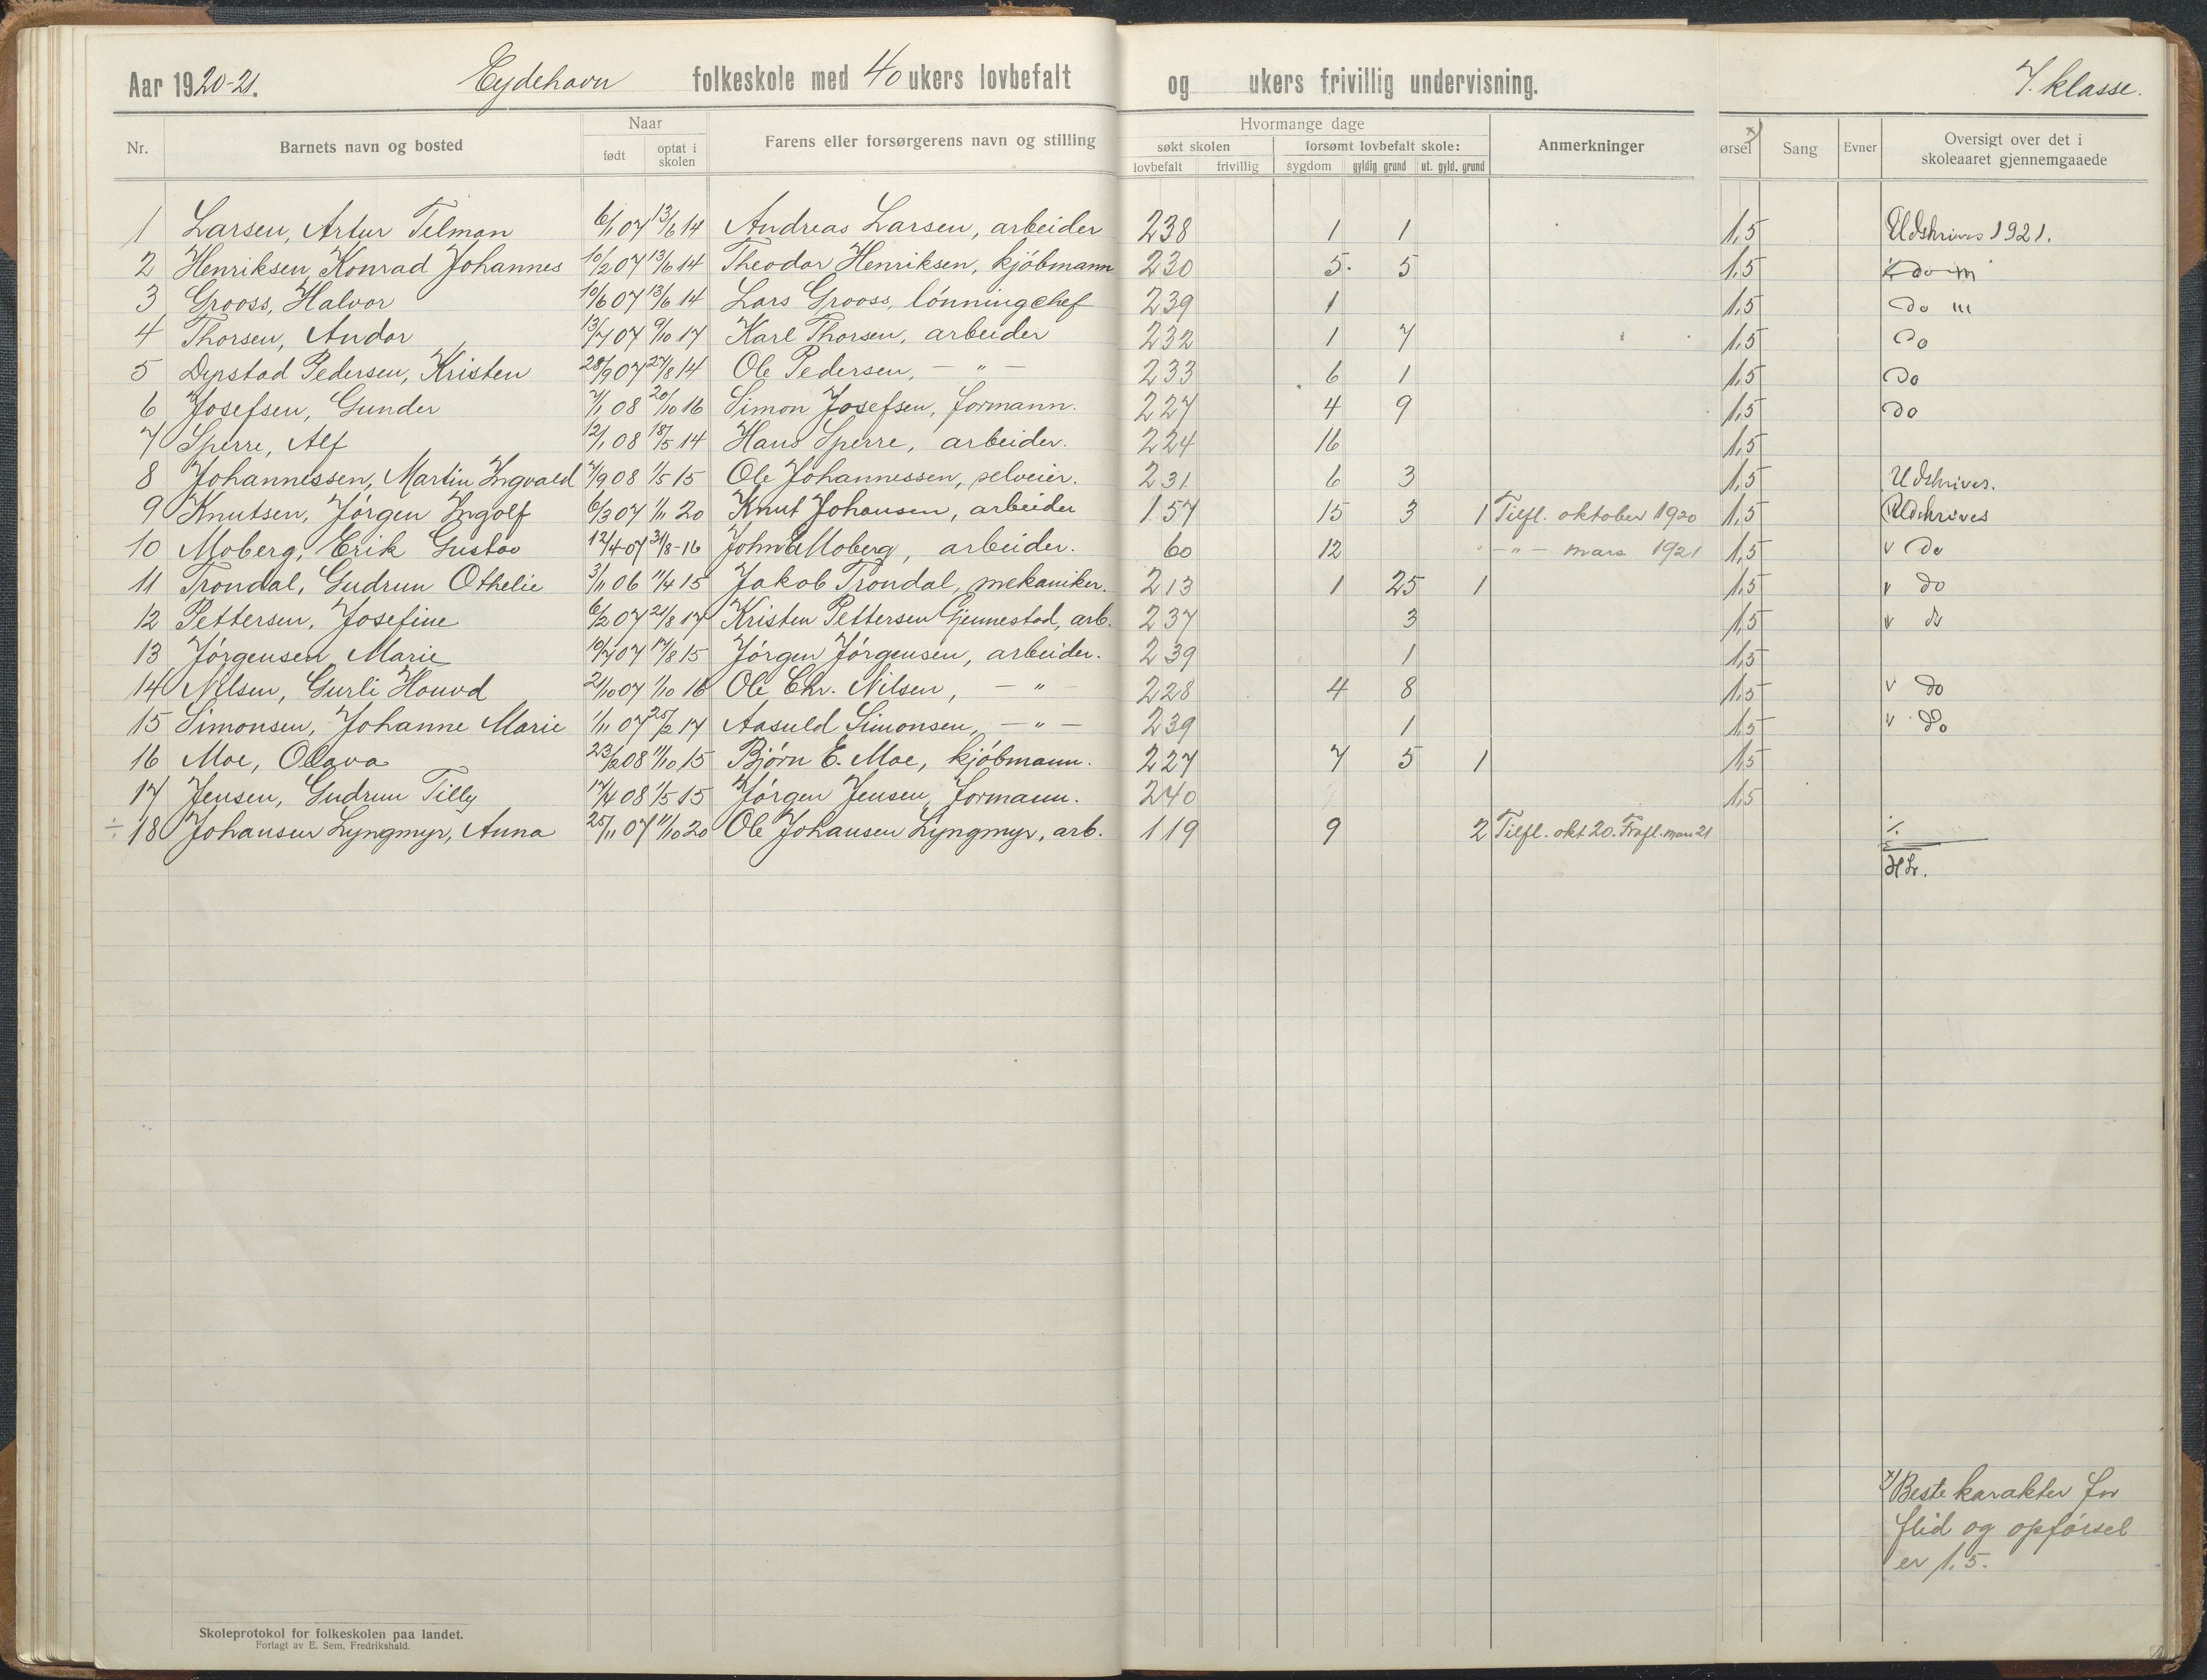 Aar 1920-21. Eydehavn folkeskole med 40 ukers lovbefalt og ukers frivillig undervisning. 7. klasse.
Nr. Barnets navn og bosted Naar født optat i skolen Farens eller forsørgerens navn og stilling Hvormange dage søkt skolen lovbefalt frivillig forsømt lovbefalt skole: sygdom gyldig grund ut. gyld. grund Anmerkninger ørsel x) Sang Evner Oversigt over det i skoleaaret gjennemgaaede
1 Larsen, Artur Telman 6/1 07 13/6 14 Andreas Larsen, arbeider 238 1 1 1,5 Udskrives 1921.
2 Henriksen, Konrad Johannes 10/2 07 13/6 14 Theodor Henriksen, kjöbmann 230 5 5 1.5 do
3 Grooss, Halvor 10/6 07 13/6 14 Lars Grooss, lönningchef 239 1 1,5 do
4 Thorsen, Andor 13/7 07 9/10 17 Karl Thorsen, arbeider 232 1 7 1,5 do
5 Dypstad Pedersen, Kristen 28/9 07 27/8 14 Ole Pedersen, — " — 233 6 1 1,5 do
6 Josefsen, Gunder 7/1 08 20/10 16 Simon Josefsen, formann. 227 4 9 1,5 do
7 Sperre, Alf 12/1 08 18/5 14 Hans Sperre, arbeider. 224 16 1,5
8 Johannessen, Martin Ingvald 7/9 08 1/5 15 Ole Johannessen, selveier. 231 6 3 1,5 Udskrives.
9 Knutsen, Jörgen Ingolf 6/3 07 1/11 20 Knut Johansen, arbeider 157 15 3 1 Tilfl. oktober 1920 1,5 Udskrives
10 Moberg, Erik Gustav 12/4-07 31/8-16 John Moberg, arbeider. 60 12 — " — mars 1921 1,5 v do
11 Trondal, Gudrun Othelie 3/11 06 11/4 15 Jakob Trondal, mekaniker. 213 1 25 1 1,5 v do
12 Pettersen, Josefine 6/2 07 21/8 17 Kristen Pettersen Gjennestad, arb. 237 3 1,5 v do
13 Jörgensen, Marie 10/7 07 17/8 15 Jörgen Jörgensen, arbeider. 239 1 1,5
14 Nilsen, Gurli Houvd 2/10 07 1/10 16 Ole Chr. Nilsen, — " — 228 4 8 1,5 v do
15 Simonsen, Johanne Marie 1/11 07 25/2 17 Aasuld Simonsen, — " — 239 1 1,5 v do
16 Moe, Olava 23/2 08 11/10 15 Björn E. Moe, kjöbmann. 227 7 5 1 1,5
17 Jensen, Gudrun Tilly 17/4 08 1/5 15 Jörgen Jensen, formann. 240 1,5
÷ 18 Johansen Lyngmyr, Anna 25/11 07 11/10 20 Ole Johansen Lyngmyr, arb. 119 9 2 Tilfl. okt 20. Frafl. mars 21 ·/.
x) Beste karakter for
flid og opförsel
er 1.5.
Skoleprotokol for folkeskolen paa landet.
Forlagt av E. Sem, Fredrikshald.